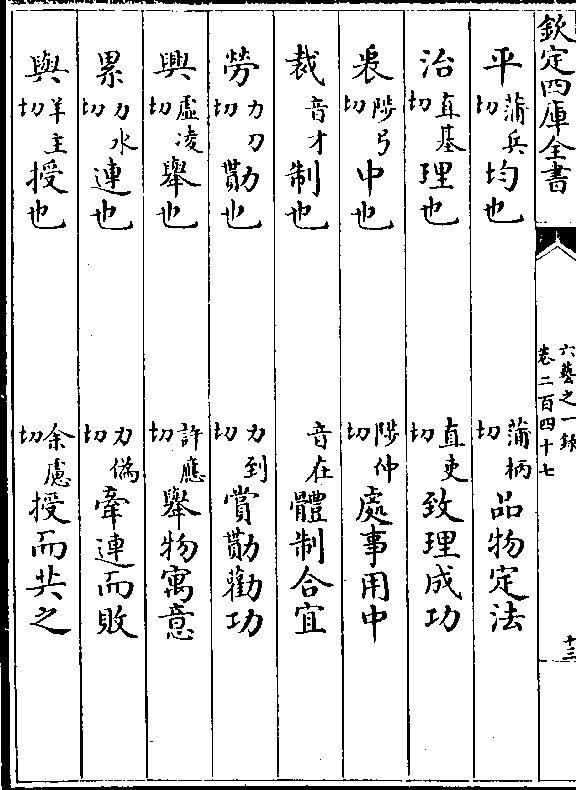 欽定四庫全書
六藝之一錄
卷二百四十七
十三
平蒲兵切均也 蒲柄切品物定法
治直基切理也 直吏切致理成功
衷陟弓切中也 陟仲切處事用中
裁音才制也 音在體制合宜
勞力刀切勩也 力到切賞勩勸功
興虛凌切舉也 許應切舉物寓意
累力水切連也 力偽切牽連而敗
與羊主切授也 余慮切授而共之